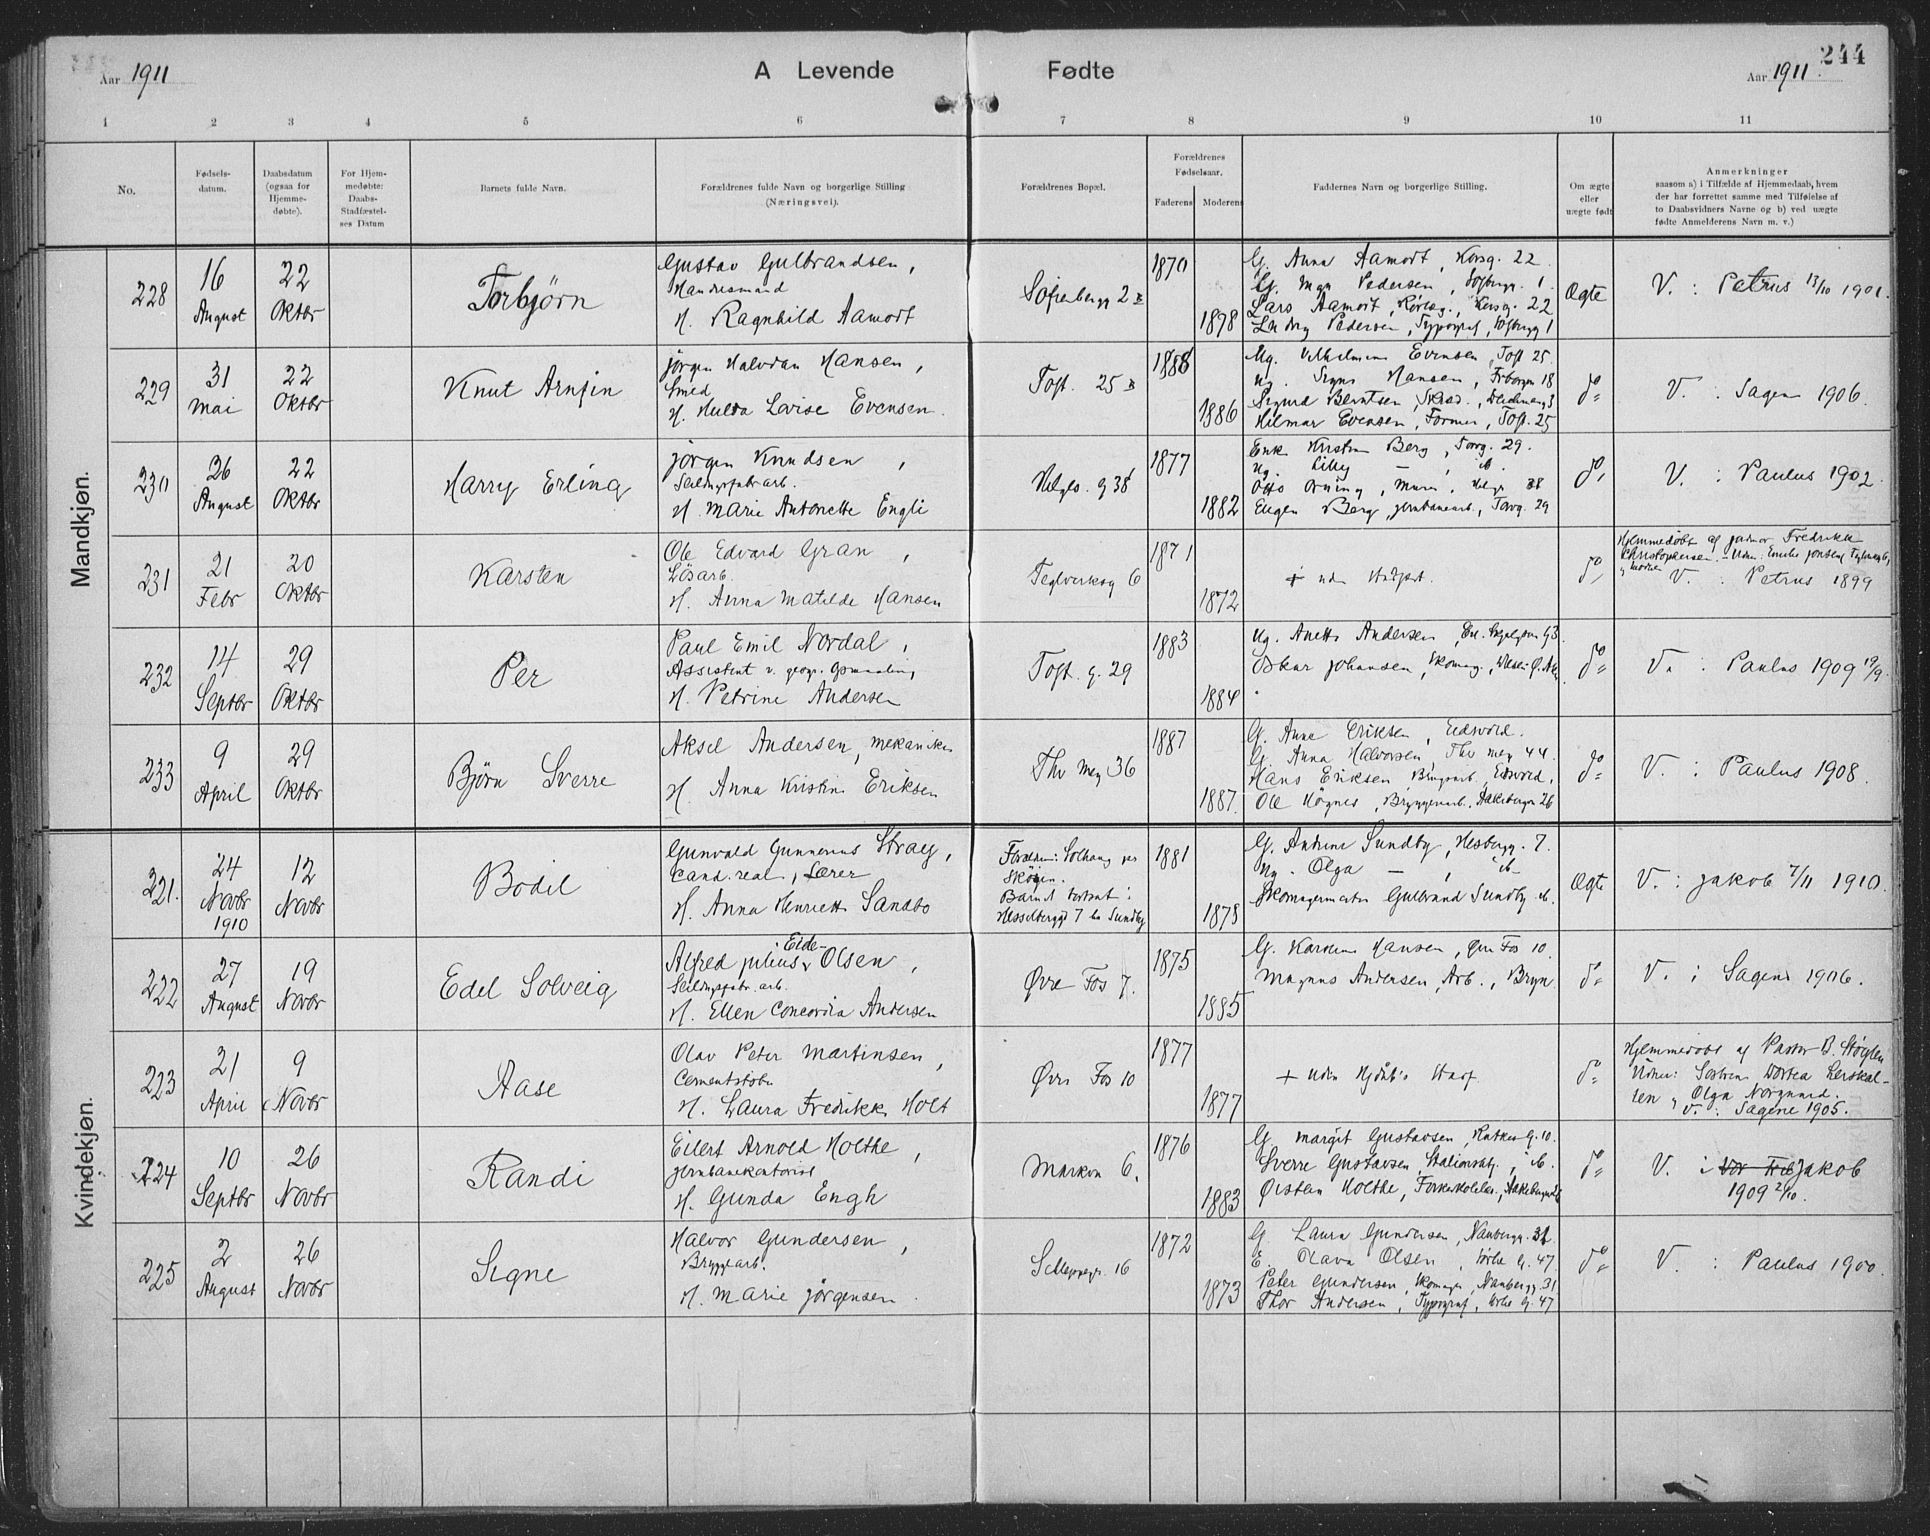 Aar 1911
A Levende Fødte
244
Aar 1911
1 2 3 4 5 6 7 8 9 10 11
No.
Fødsels-
datum.
Daabsdatum
(ogsaa for
Hjemme-
døbte).
For Hjem-
medøbte:
Daabs-
Stadfæstel-
ses Datum
Barnets fulde Navn.
Forældrenes fulde Navn og borgerlige Stilling
(Næringsvei).
Forældrenes Bopæl.
Forældrenes
Fødselsaar.
Faderens Moderens
Faddernes Navn og borgerlige Stilling.
Om ægte
eller
uægte født
Anmerkninger
saasom a) i Tilfælde af Hjemmedaab, hvem
der har forrettet samme med Tilføielse af
to Daabsvidners Navne og b) ved uægte
fødte Anmelderens Navn m. v.)
Mandkjøn.
228
16
August
22
Oktbr
Torbjørn
Gustav Gulbrandsen,
Handelsmand
H. Ragnhild Aamodt
Sofienbergg 2 B
1870
1878
G. Anna Aamodt, Korsg. 22
Pedersen, Sofbergg. 1
Lars Aamodt, Korsg. 22
Pedersen, Typograf, Sofbergg 1
Ægte
V. : Petrus 13/10 1901.
229
31
Mai
22
Oktbr
Knut Arnfin
Jørgen Halvdan Hansen,
Smed
H. Hulda Lovise Evensen.
Toft. 25 B
1886
1886
Ug. Vilhelmine Evensen, Toft 25.
Ug. Signe Hansen, 18
Sigurd Berntsen,
Hilmar Evensen, Former, Toft. 25
do
V. : Sagen 1906.
230
26
August
22
Oktbr
Harry Erling
Jørgen Knudsen,
Seildugsfabr arb.
H. Marie Antonette Engli
Helgs. g 38
1877
1882
Enk Kristin Berg, Torvg. 29.
Ug. Lilly — , ib.
Otto Orning, Murer, Helgs 38
Eugen Berg, Jernbanearb., Torvg. 29
do
V. : Paulus 1902.
231
21
Febr
20
Oktbr
Karsten
Ole Edvard Gran,
Løsarb.
H. Anna Matilde Hansen
Teglverksg 6
1871
1872
+ uden Stadfæst.
do
Hjemmedøbt af Jordmor Fredrikke
Christophersen.
V. : Petrus 1899
232
14
Septbr
29
Oktbr
Per
Paul Emil Nordal,
Assistent v. geogr. Opmaaling
H. Petrine Andersen
Toft. g. 29
1883
1884
Ug. Anette Andersen,
Oskar Johansen, Skomag.,
do
V. : Paulus 1909 19/9.
233
9
April
29
Oktbr
Bjørn Sverre
Aksel Andersen, mekaniker
H. Anna Kristine Eriksen
Thv Mey 36
1887
1887.
G. Anne Eriksen, Eidsvold.
G. Anna Halvorsen, Thv Mey 44.
Hans Eriksen Brugsarb. Eidsvold,
Ole Høgnes, Bryggearb., Aakebergv 26
do
V. : Paulus 1908.
Kvindekjøn.
221.
24
Novbr
1910
12
Novbr
Bodil
Gunvald Gunnerius Stray,
Cand. real, Lærer
H. Anna Henriette Sandbo
Forældre: Solhaug per
Skøien.
Barnet bortsat i
Hesselbergg 7 hos Sundby
1881
1878
G. Andrine Sundby, Hesbergg. 7.
Ug. Olga — , ib
Skomagermester Gulbrand Sundby ib.
Ægte
V. : Jakob 7/11 1910.
222
27
August
19
Novbr
Edel Solveig
Eide-
Alfred Julius Olsen,
Seildugsfabr. arb.
H. Ellen Concordia Andersen
Øvre Fos 7.
1875
1885
G. Karoline Hansen, Øvre Fos 10.
Magnus Andersen, Arb., Bryn
do
V. : Sagene 1906.
223
21
April
9
Novbr
Aase
Olav Peter Martinsen,
Cementstøber
H. Laura Fredrikke Holt
Øvre Fos 10
1877
1877
+ uden Hjdåb's Stadf.
do
Hjemmedøbt af Pastor B. Støylen
Vidner: Søstrene Dortea Lerskal-
len og Olga Norgaard.
V. : Sagene 1905.
224
10
Septbr
26
Novbr
Randi
Eilert Arnold Holthe,
Jernbanekontorist
H. Gunda Engh
Markvn 6.
1876
1883
G. Margit Gustavsen, G. 10.
Sverre Gustavsen, Stationsbtj., ib.
Øistein Holthe, Aakebergv 26
do
V. : Jakob
1909 2/10.
225
2
August
26
Novbr
Signe
Halvor Gundersen,
Bryggearb.
H. Marie Jørgensen.
Schleppegr. 16
1872
1873
G. Laura Gundersen, Nanbergg. 31
E Olava Olsen, G. 47.
Peter Gundersen, Skomager, Nanbergg. 31
Thor Andersen, Typograf, G. 47
do
V. : Paulus 1900.